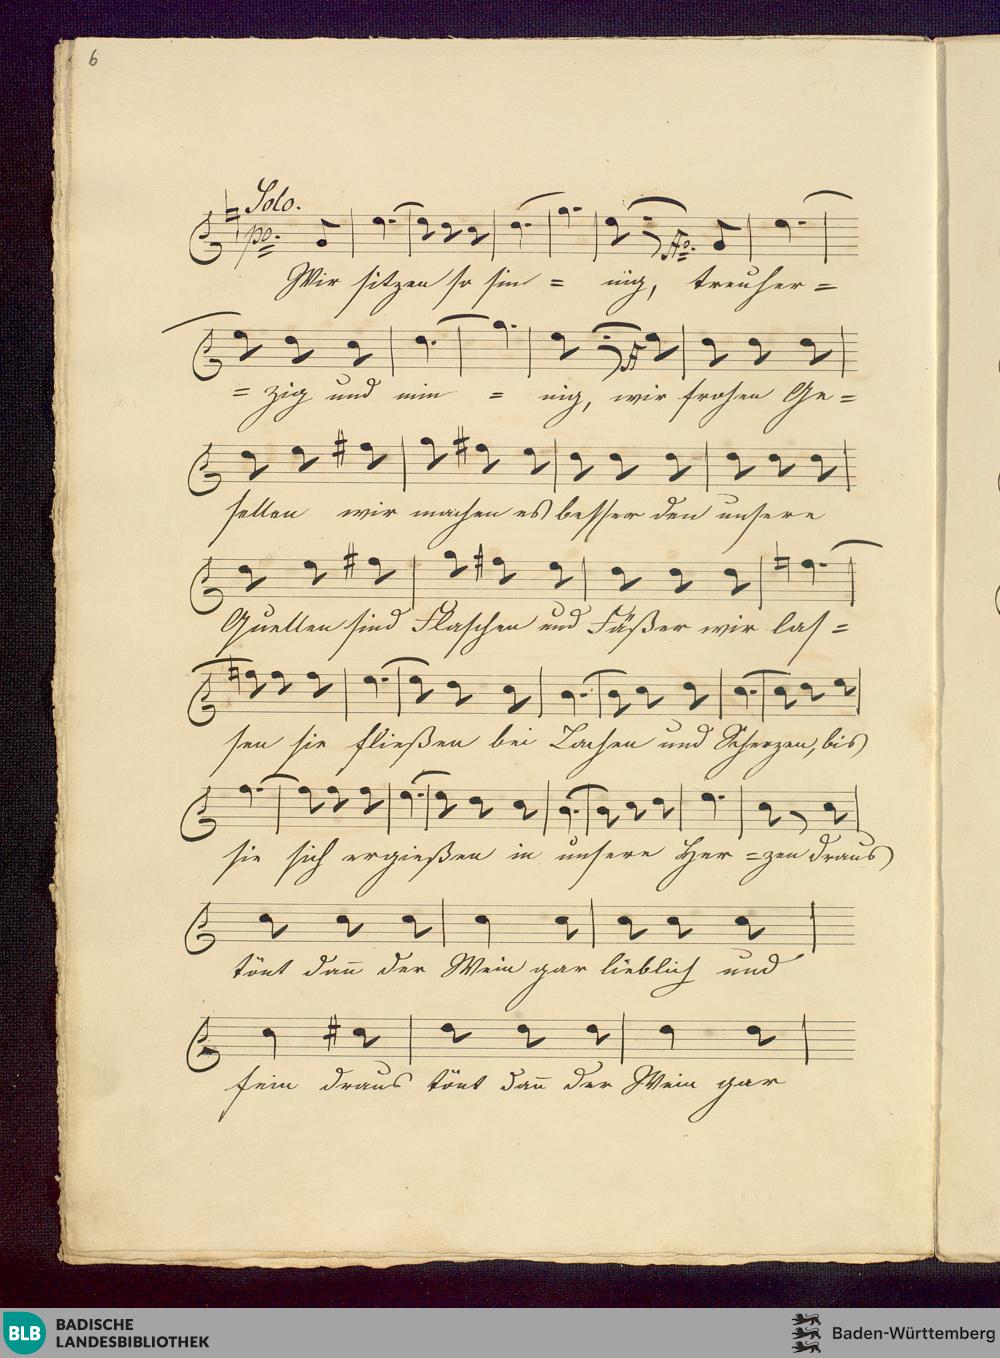 6
Solo.
po.
fo.
Wir sitzen so sin = nig, treuher =
= zig und min = nig, wir frohen Ge =
sellen wir machen es besser den unsere
Quellen sind Flaschen und Fäßer wir las =
sen sie fließen bei Lachen und Scherzen, bis
sie sich ergießen in unsere Her = zen draus
tönt dan̅ der Wein gar lieblich und
fein draus tönt dan̅ der Wein gar
BLB
BADISCHE
LANDESBIBLIOTHEK
Baden-Württemberg